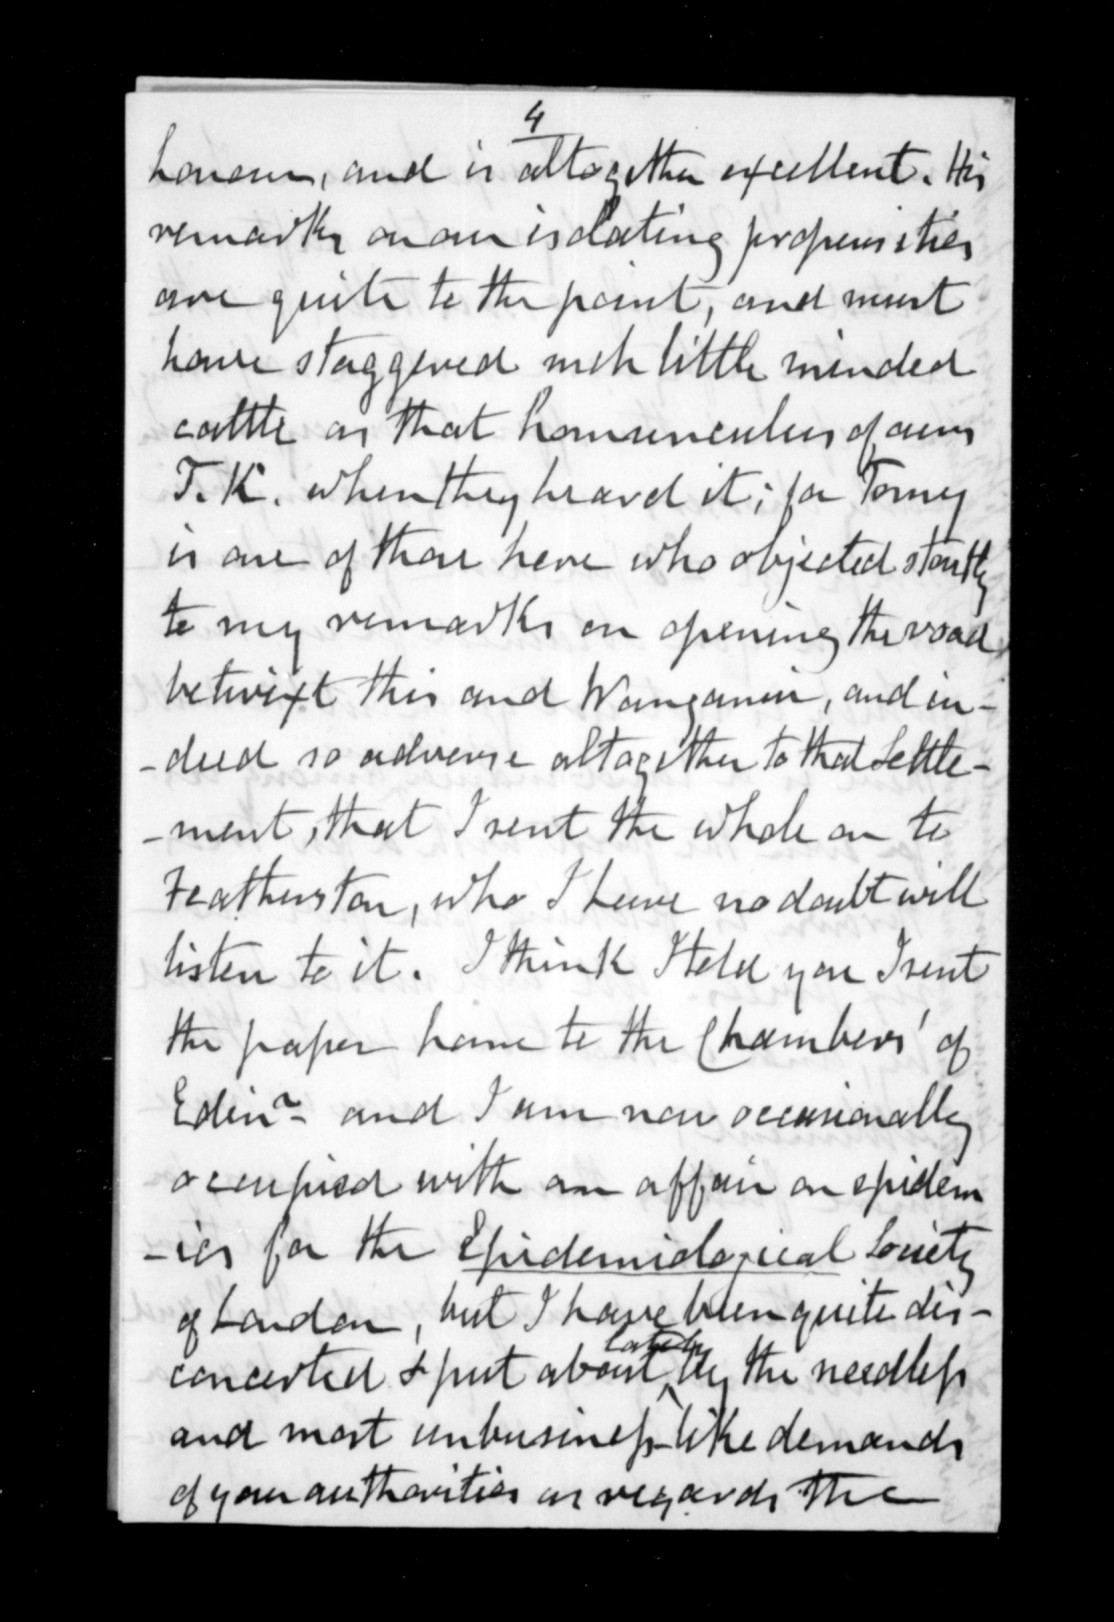 4
honour, and is altogether excellent. His
remarks on our isolating propensities
are quite to the point, and must
have staggered such little minded
cattle as that homunculus of ours
T. K. when they heard it; for Tomey
is one of those here who objected stoutly
to my remarks on opening the road
betwixt this and Wanganui, and in-
-deed so adverse altogether to that Settle-
-ment, that I sent the whole on to
Featherston, who I have no doubt will
listen to it. I think I told you I sent
the paper home to the Chambers' of
Edinr- and I am now occasionally
occupied with an affair on epidem
-ics for the Epidemiological Society
of London, but I have been quite dis-
concerted & put about lately by the needless
and most unbusiness-like demands
of your authorities as regards the